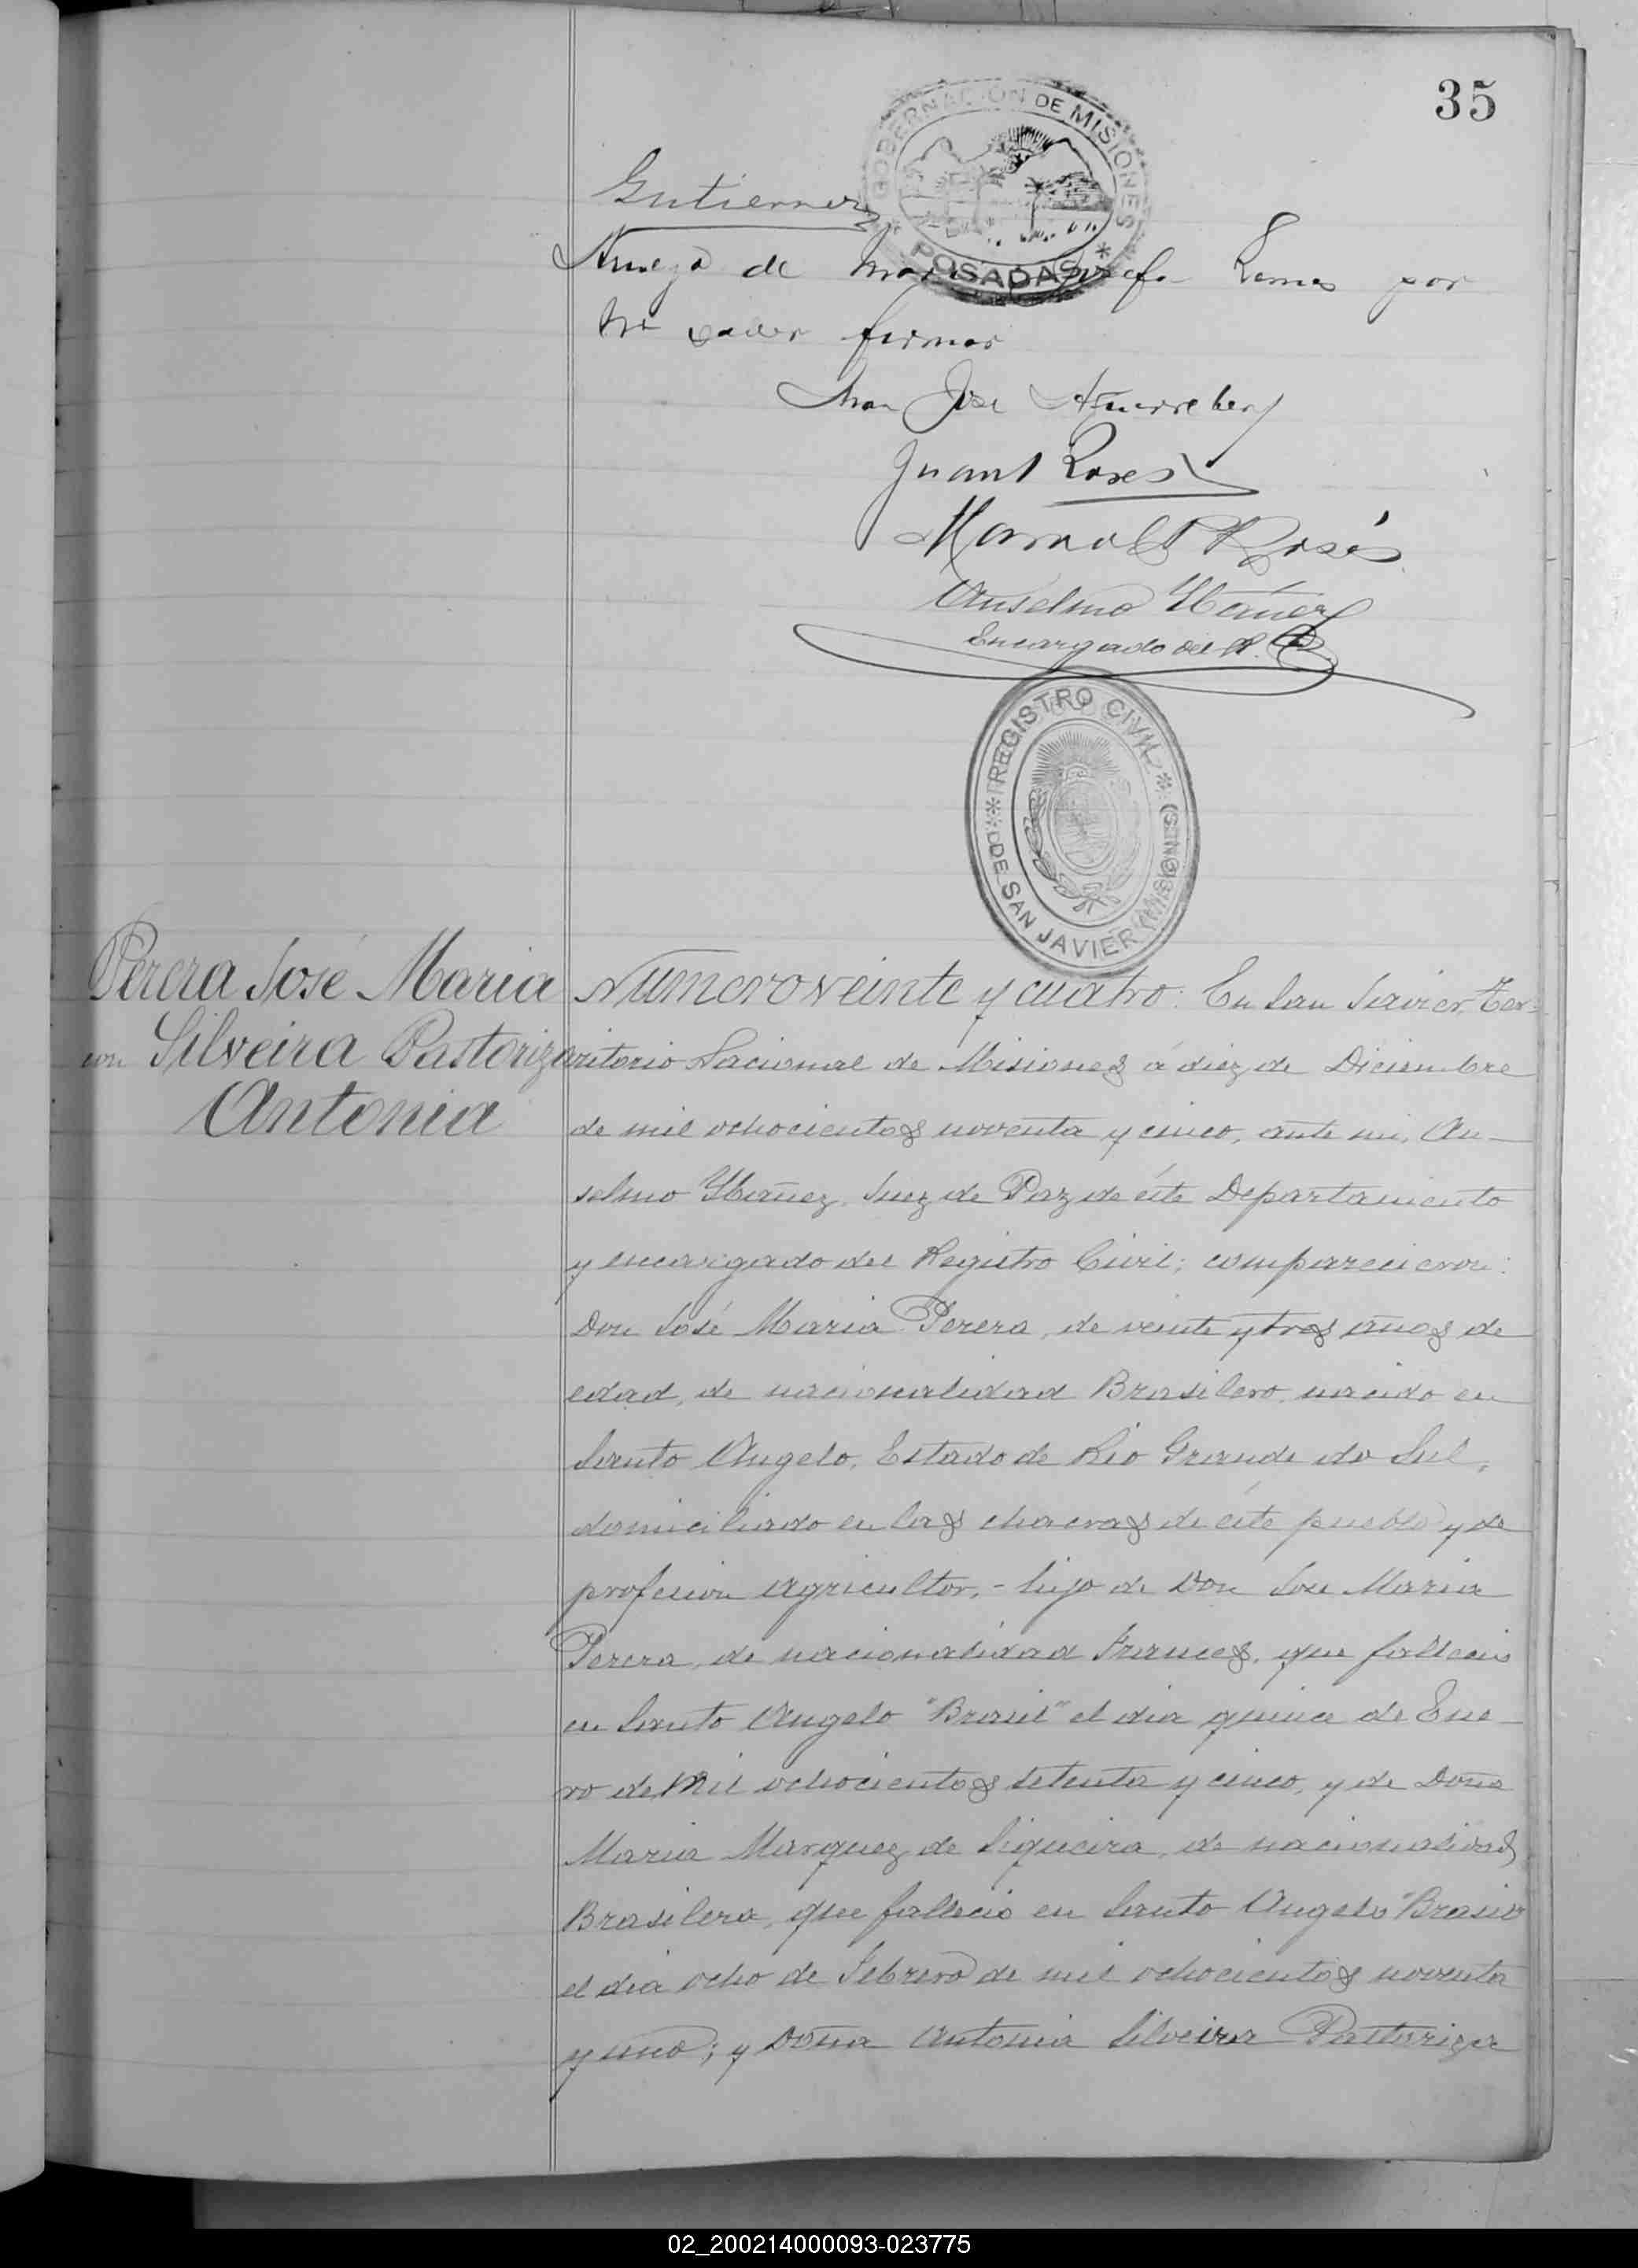 35
GOBERNACION DE MISIONES
* POSADAS *
Gutierrez
A ruego de Maria Josefa Lemes por
no saver firmar
Juan José
Juan L Roses
Manuel P Rosés
Anselmo Ybañez
Encargado del R. C.
REGISTRO CIVIL
DE SAN JAVIER (MISIONES)
Perera José Maria
con Silveira Pastoriza
Antonia
Numero veinte y cuatro: En San Javier Ter=
ritorio Nacional de Misiones á diez de Diciembre
de mil ochocientos noventa y cinco, ante mi, An-
selmo Ybañez, Juez de Paz de éste Departamiento
y encargado del Registro Civil; comparecieron:
Don José Maria Perera, de veinte y tres años de
edad, de nacionalidad Brasilero, nacido en
Santo Angelo, Estado de Rio Grande do Sul,
domiciliado en las chacras de éste pueblo y de
profesion agricultor, - hijo de Don José Maria
Perera, de nacionalidad Frances, que fallecio
en Santo Angelo "Brasil" el dia quince de Ene-
ro de mil ochocientos setenta y cinco, y de Doña
Maria Marquez de Siqueira, de nacionalidad
Brasilera, que fallecio en Santo Angelo "Brasil"
el dia ocho de Febrero de mil ochocientos noventa
y uno; y Doña Antonia Silveira Pastoriza
02_200214000093-023775